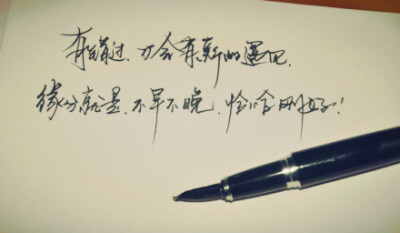 有错过、才会有新的遇见.
缘分就是、不早不晚、恰恰刚好!